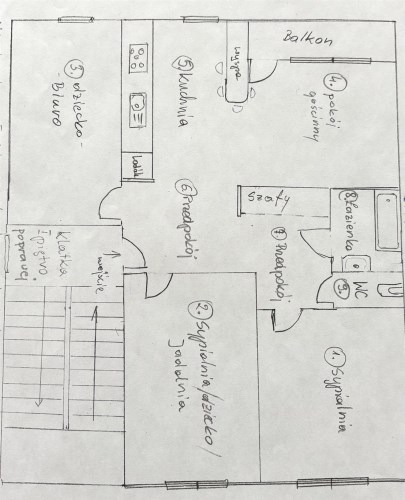 Balkon
3. dziecko-
Biuro
5 Kuchnia
wyspa
4. pokój
gościnny
lodów.
6. Przedpokój
Szafy
8. Łazienka
7 Przedpokój
9. WC
Klatka
I piętro
poprawej
wejście
2. Sypialnia/dziecko/
Jadalnia
1. Sypialnia